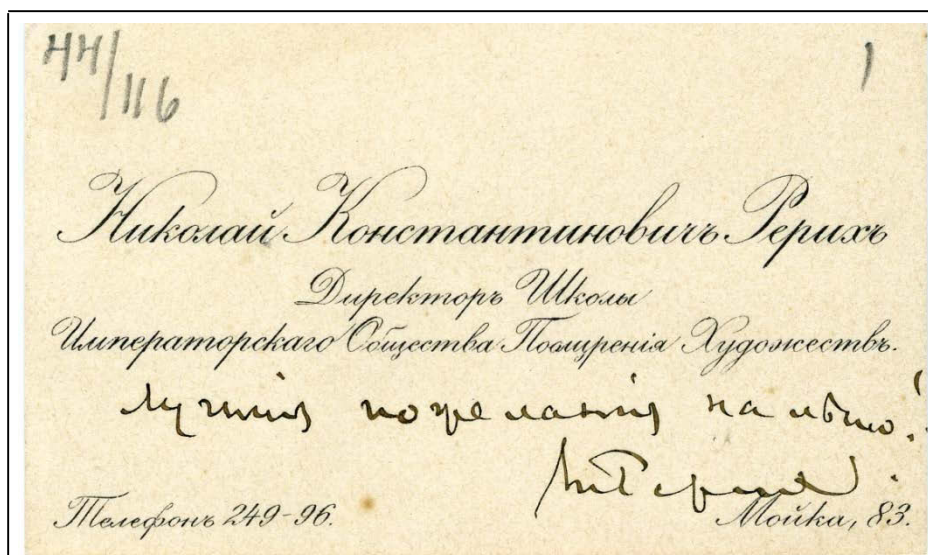 44/116
1
Николай Константиновичъ Рерихъ
Директоръ Школы
Императорскаго Общества Поощренія Художествъ.
Лучшія пожеланія на лѣто!
НРерихъ
Телефонъ 249-96.
Мойка, 83.